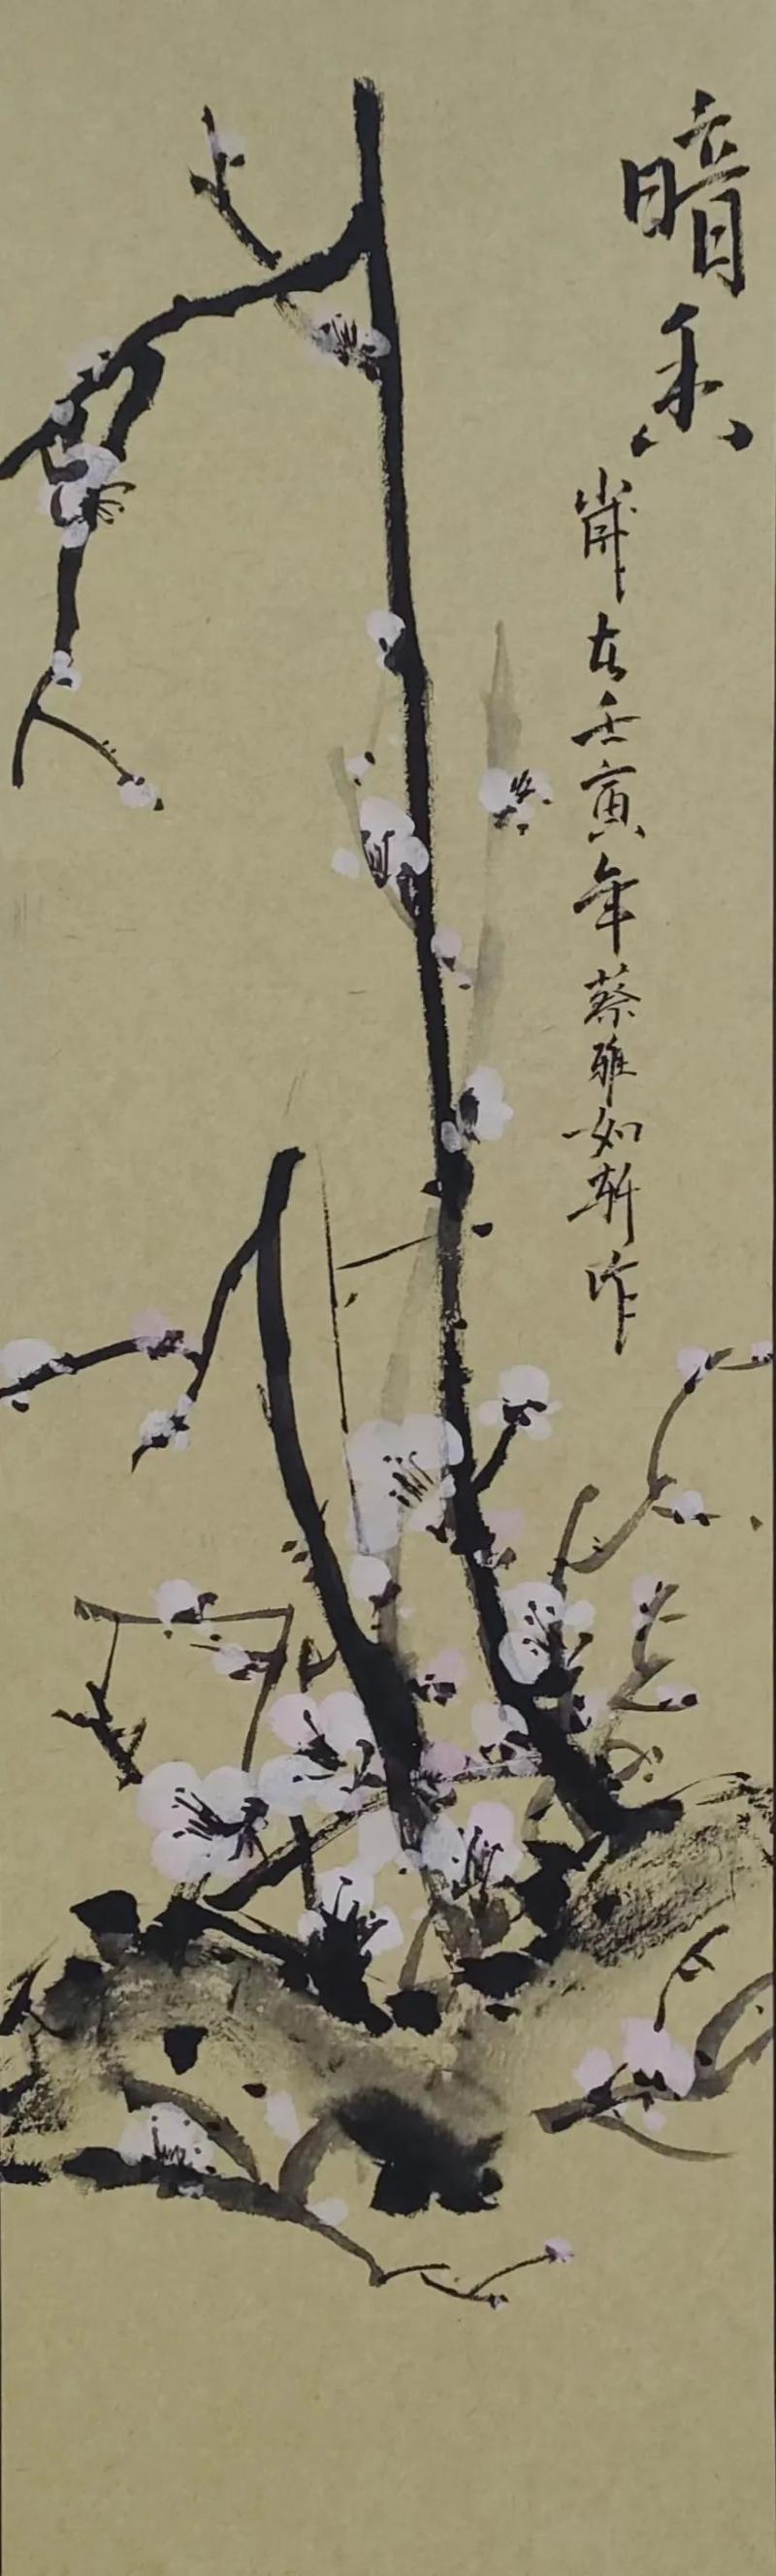 暗香
歲在壬寅年蔡雅如新作